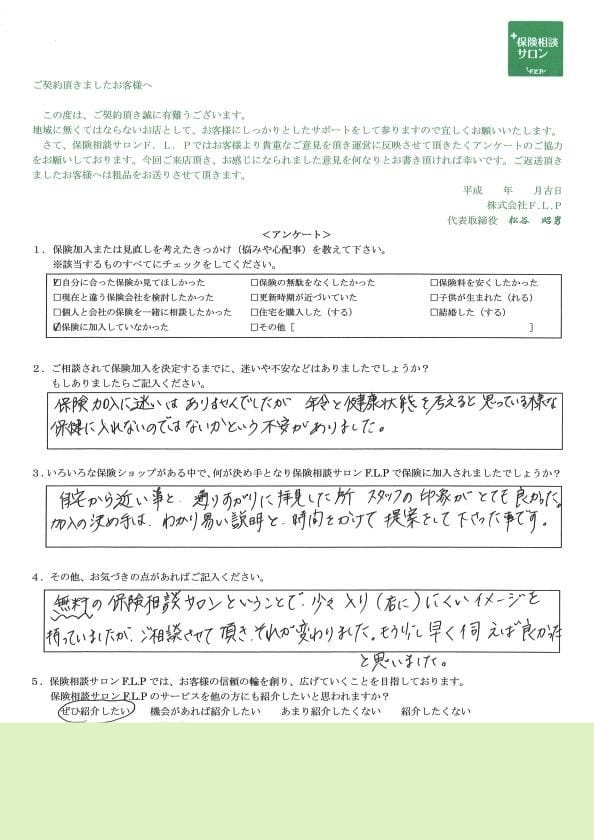 +保険相談
サロン
F.L.P
ご契約頂きましたお客様へ
この度は、ご契約頂き誠に有難うございます。
地域に無くてはならないお店として、お客様にしっかりとしたサポートをして参りますので宜しくお願いいたします。
さて、保険相談サロンF.L.Pではお客様より貴重なご意見を頂き運営に反映させて頂きたくアンケートのご協力
をお願いしております。今回ご来店頂き、お感じになられました意見を何なりとお書き頂ければ幸いです。ご返送頂き
ましたお客様へは粗品をお送りさせて頂きます。
平成　年　月吉日
株式会社F.L.P
代表取締役　松谷　昭男
＜アンケート＞
1．保険加入または見直しを考えたきっかけ（悩みや心配事）を教えて下さい。
※該当するものすべてにチェックをしてください。
☑自分に合った保険か見てほしかった　□保険の無駄をなくしたかった　□保険料を安くしたかった
□現在と違う保険会社を検討したかった　□更新時期が近づいていた　□子供が生まれた（れる）
□個人と会社の保険を一緒に相談したかった　□住宅を購入した（する）　□結婚した（する）
☑保険に加入していなかった　□その他［　］
2．ご相談されて保険加入を決定するまでに、迷いや不安などはありましたでしょうか？
もしありましたらご記入ください。
保険加入に迷いはありませんでしたが　年令と健康状態を考えると思っている様な
保健に入れないのではないかという不安がありました。
3．いろいろな保険ショップがある中で、何が決め手となり保険相談サロンF.L.Pで保険に加入されましたでしょうか？
自宅から近い事と、通りすがりに拝見した所　スタッフの印象がとても良かった。
加入の決め手は、わかり易い説明と、時間をかけて提案をして下さった事です。
4．その他、お気づきの点があればご記入ください。
無料の保険相談サロンということで、少々入り（店に）にくいイメージを
持っていましたが、ご相談させて頂き、それが変わりました。もう少し早く伺えば良かった
と思いました。
5．保険相談サロンF.L.Pでは、お客様の信頼の輪を創り、広げていくことを目指しております。
保険相談サロンF.L.Pのサービスを他の方にも紹介したいと思われますか？
ぜひ紹介したい　機会があれば紹介したい　あまり紹介したくない　紹介したくない